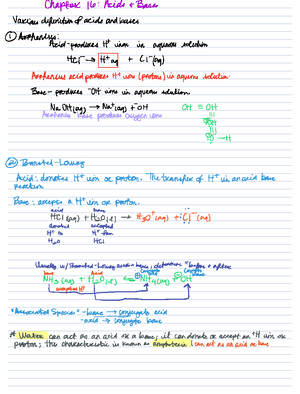 Chapter 16: Acids + Bases
Various definition of acids and bases
① Arrhenius:
Acid - produces H⁺ ions in aqueous solution
HCl → H⁺aq + Cl⁻(aq)
Arrhenius acid produces H⁺ ions (protons) in aqueous solution.
Base - produces ⁻OH ions in aqueous solution
NaOH(aq) → Na⁺(aq) + ⁻OH
OH = OH
Arrhenius base produces
② Brønsted-Lowry
Acid: donates H⁺ ion or proton. The transfer of H⁺ in an acid base
reaction
Base: accepts a H⁺ ion or proton.
acid base
HCl(aq) + H₂O(l) → H₃O⁺(aq) + Cl⁻(aq)
donated accepted
H⁺ to H⁺ from
H₂O HCl
Usually w/ Brønsted-Lowry acids + bases, determine before + after
base Acid Conjugate acid Conjugate base
NH₃(aq) + H₂O(l) ⇌ NH₄(aq) + OH
accepted H⁺
"Associated Species" - base → conjugate acid
- acid → conjugate base
* Water can act as an acid or a base; it can donate or accept an ⁺H ion or
proton; this characteristic is known as amphoteric (can act as acid or base